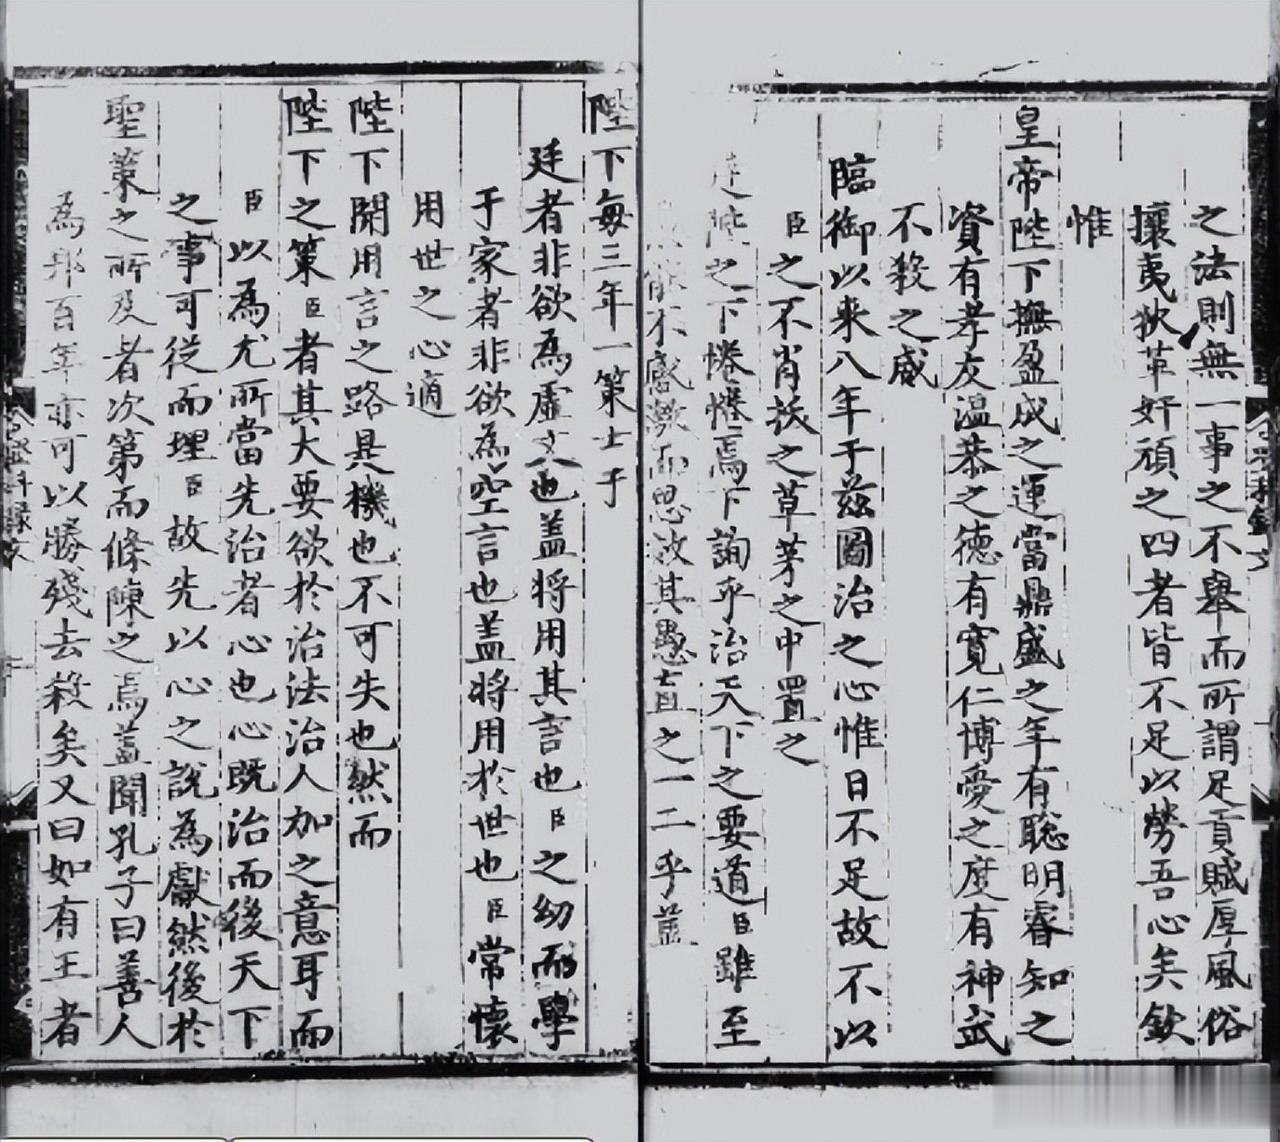 之法則無一事之不舉而所謂足貢賦厚風俗
攘夷狄革奸頑之四者皆不足以勞吾心矣欽
惟
皇帝陛下撫盈成之運當鼎盛之年有聰明睿知之
資有孝友溫恭之德有寬仁博愛之度有神武
不殺之威
臨御以來八年于茲圖治之心惟日不足故不以
臣之不肖扳之草茅之中置之
陛之下惓惓焉下詢乎治天下之要道臣雖至
能不感激而思效其愚直之一二乎蓋
陛下每三年一策士于
廷者非欲為虛文也盖將用其言也臣之幼而學
于家者非欲為空言也盖將用於世也臣常懷
用世之心適
陛下開用言之路是機也不可失也然而
陛下之策臣者其大要欲於治法治人加之意耳而
臣以為尤所當先治者心也心既治而後天下
之事可從而理臣故先以心之說為獻然後於
聖策之所及者次第而條陳之焉蓋聞孔子曰善人
為邦百年亦可以勝殘去殺矣又曰如有王者